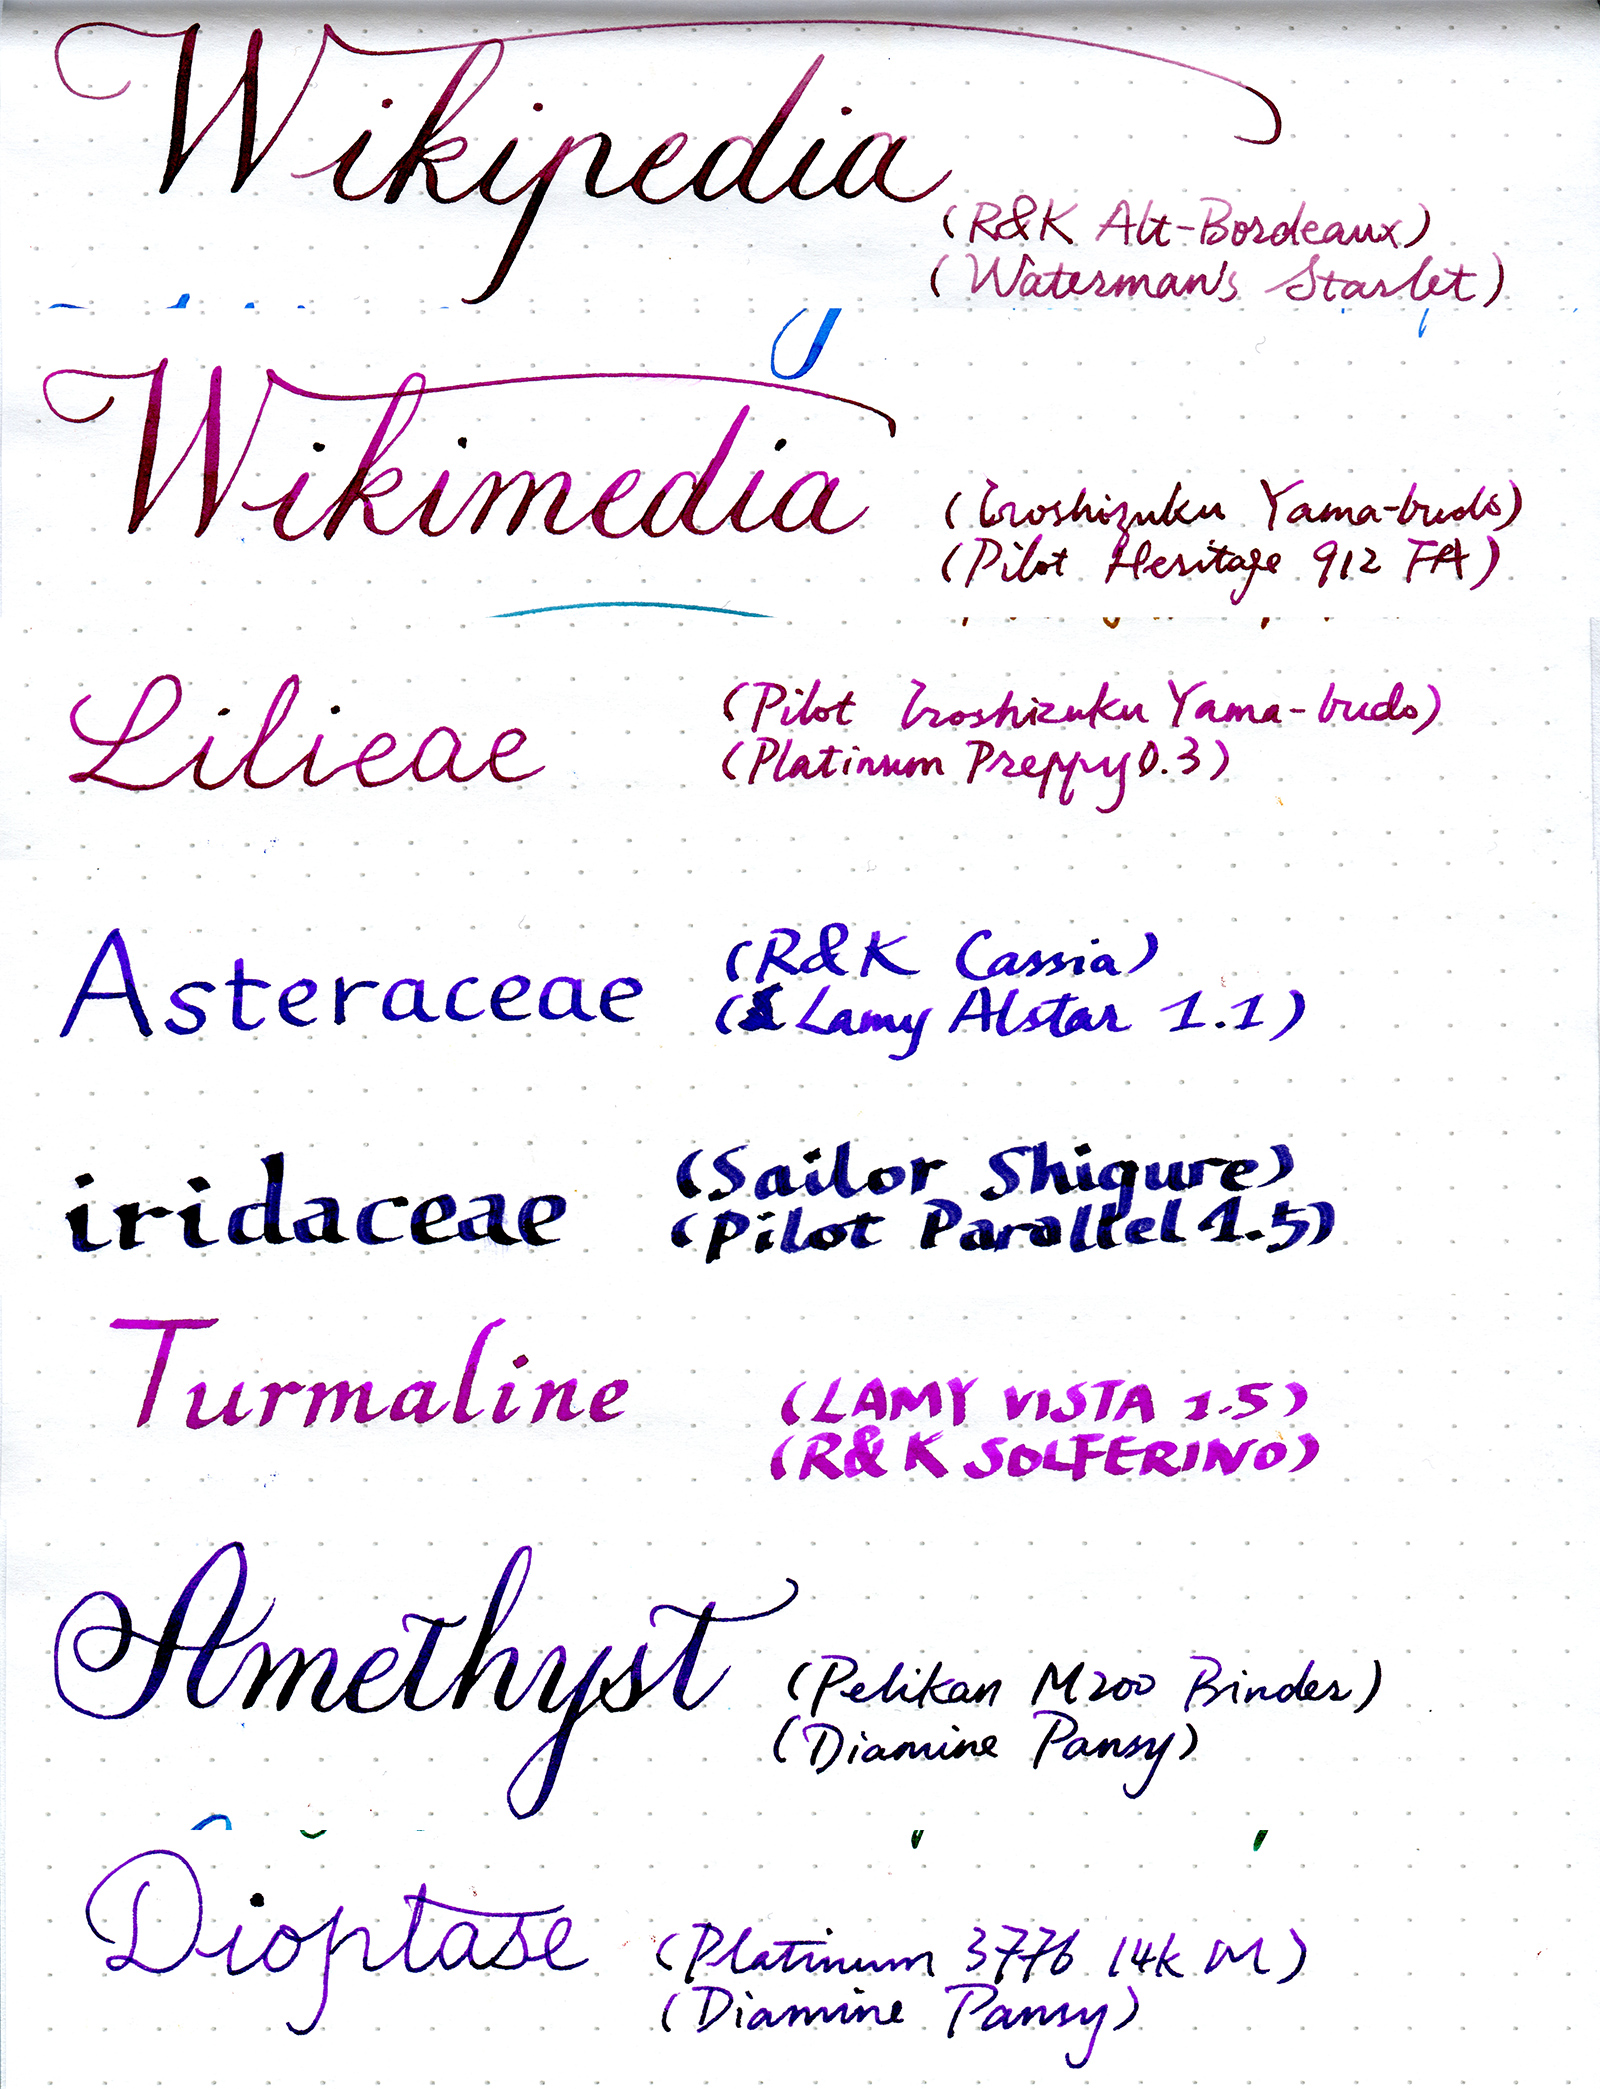 Wikipedia
(R&K Alt-Bordeaux)
(Waterman's Starlet)
Wikimedia
(Iroshizuku Yama-budo)
(Pilot Heritage 912 FA)
Lilieae
(Pilot Iroshizuku Yama-budo)
(Platinum Preppy 0.3)
Asteraceae
(R&K Cassia)
(Lamy Alstar 1.1)
iridaceae
(Sailor Shigure)
(Pilot Parallel 1.5)
Turmaline
(LAMY VISTA 1.5)
(R&K SOLFERINO)
Amethyst
(Pelikan M200 Binder)
(Diamine Pansy)
Dioptase
(Platinum 3776 14K M)
(Diamine Pansy)